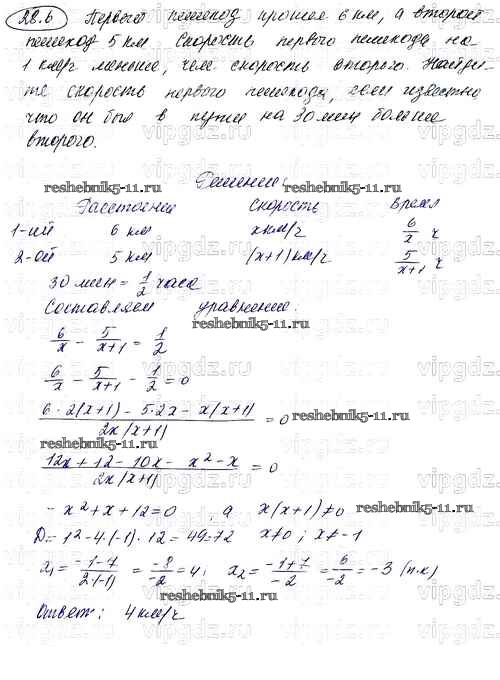 28.6 Первый пешеход прошел 6 км, а второй
пешеход 5 км. Скорость первого пешехода на
1 км/ч меньше, чем скорость второго. Найди-
те скорость первого пешехода, если известно
что он был в пути на 30 мин больше
второго.
Решение:
reshebnik5-11.ru reshebnik5-11.ru
Расстояние Скорость Время
1-ый 6 км x км/ч 6/x ч
2-ой 5 км (x+1) км/ч 5/x+1 ч
30 мин = 1/2 часа
Составляем уравнение:
reshebnik5-11.ru
6/x - 5/x+1 = 1/2
6/x - 5/x+1 - 1/2 = 0
6·2(x+1) - 5·2x - x(x+1) / 2x(x+1) = 0
reshebnik5-11.ru
reshebnik5-11.ru
12x + 12 - 10x - x² - x / 2x(x+1) = 0
- x² + x + 12 = 0, а x(x+1) ≠ 0
reshebnik5-11.ru
D = 1² - 4·(-1)·12 = 49 = 7² x ≠ 0; x ≠ -1
x₁ = -1-7 / 2·(-1) = -8/-2 = 4; x₂ = -1+7 / -2 = 6/-2 = -3 (п.к)
reshebnik5-11.ru
Ответ: 4 км/ч